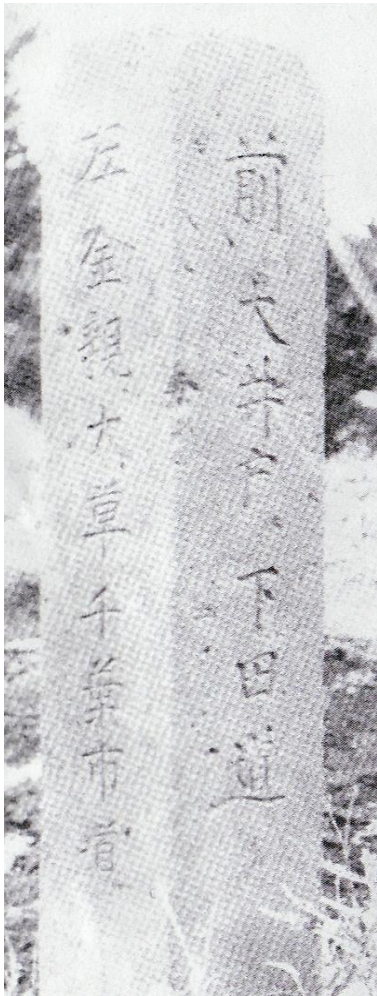 前大井戸下田道
左金親大草千葉市道